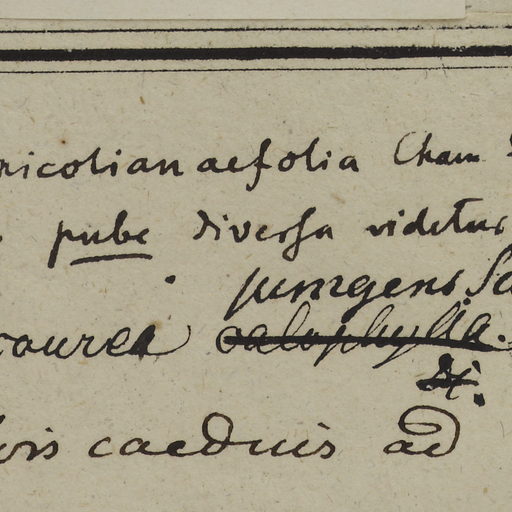 nicotianaefolia Cham
pube diversa videtur
pungens Sa
courea calophylla.
vis caeduis ad